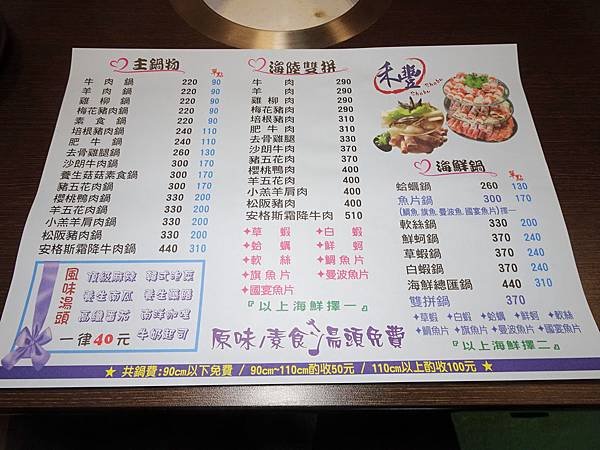 主鍋物 單點
牛肉鍋 220 90
羊肉鍋 220 90
雞柳鍋 220 90
梅花豬肉鍋 220 90
素食鍋 220 90
培根豬肉鍋 240 110
肥牛鍋 240 110
去骨雞腿鍋 260 130
沙朗牛肉鍋 300 170
養生菇菇素食鍋 300 170
豬五花肉鍋 300 170
櫻桃鴨肉鍋 330 200
羊五花肉鍋 330 200
小羔羊肩肉鍋 330 200
松阪豬肉鍋 330 200
安格斯霜降牛肉鍋 440 310
風味湯頭
頂級麻辣 韓式泡菜
養生南瓜 養生臟臟
高纖蕃茄 南洋咖哩
一律40元 牛奶起司
海陸雙拼
牛肉 290
羊肉 290
雞柳肉 290
梅花豬肉 290
培根豬肉 310
肥牛肉 310
去骨雞腿 330
沙朗牛肉 370
豬五花肉 370
櫻桃鴨肉 400
羊五花肉 400
小羔羊肩肉 400
松阪豬肉 400
安格斯霜降牛肉 510
✦草蝦 ✦白蝦
✦蛤蠣 ✦鮮蚵
✦軟絲 ✦鯛魚片
✦旗魚片 ✦曼波魚片
✦國宴魚片
『以上海鮮擇一』
原味/素食湯頭免費
禾豐
Shabu Shabu
海鮮鍋 單點
蛤蠣鍋 260 130
魚片鍋 300 170
(鯛魚,旗魚,曼波魚,國宴魚片)擇一
軟絲鍋 330 200
鮮蚵鍋 370 240
草蝦鍋 370 240
白蝦鍋 370 240
海鮮總匯鍋 440 310
雙拼鍋 370
✦草蝦 ✦白蝦 ✦蛤蠣 ✦鮮蚵 ✦軟絲
✦鯛魚片 ✦旗魚片 ✦曼波魚片 ✦國宴魚片
『以上海鮮擇二』
★ 共鍋費:90cm以下免費 / 90cm~110cm酌收50元 / 110cm以上酌收100元 ★